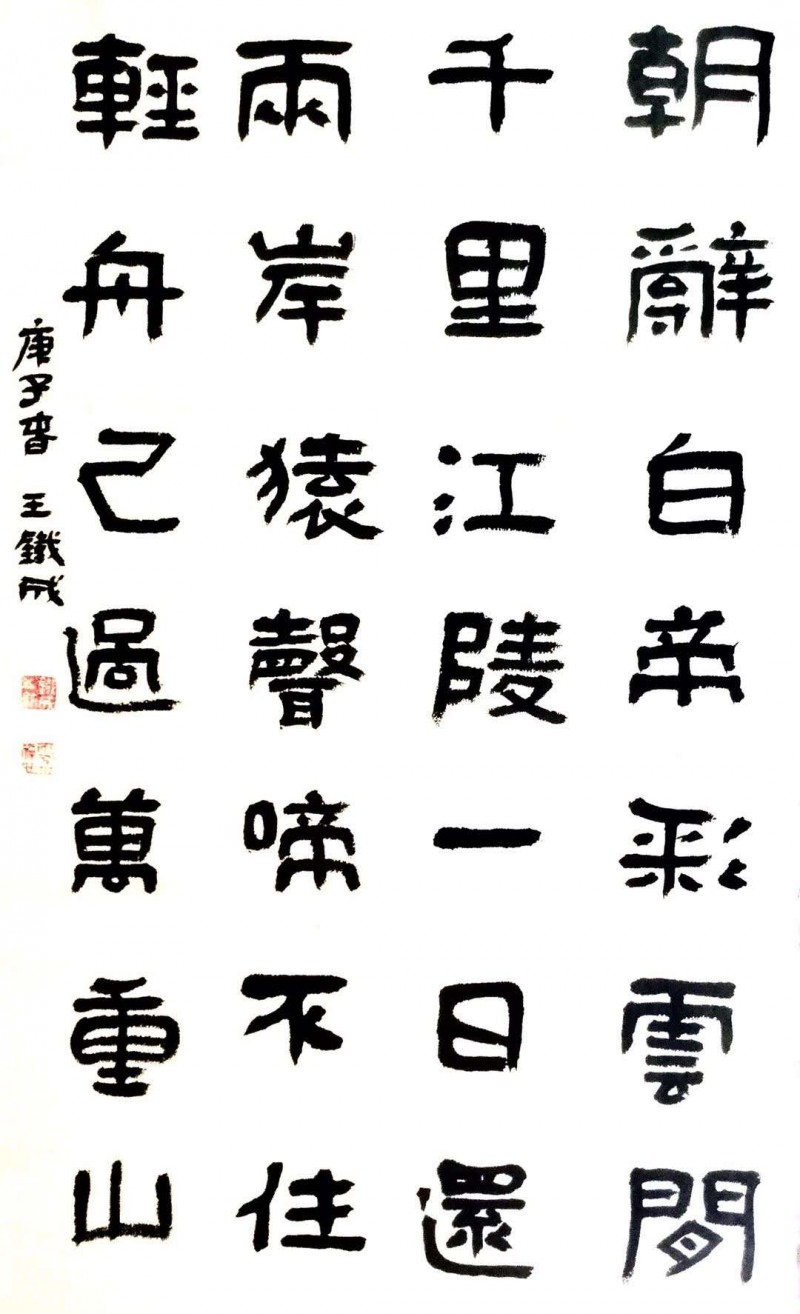 朝辭白帝彩雲間
千里江陵一日還
兩岸猿聲啼不住
輕舟已過萬重山
庚子春 王鐵成